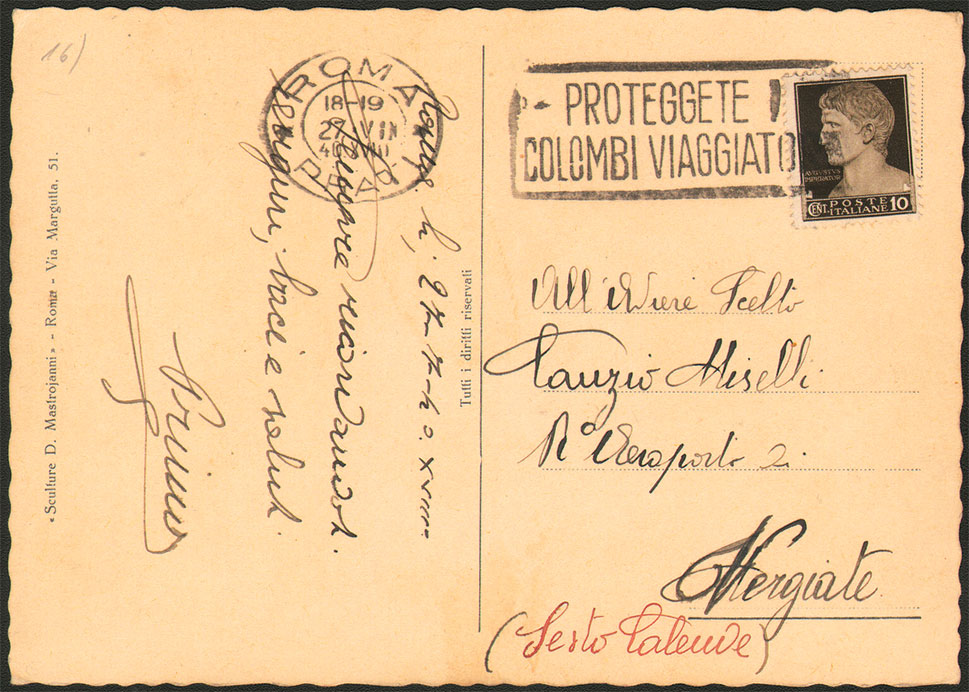 16)
ROMA
18-19
27.VII
40 XVIII
PROTEGGETE I
COLOMBI VIAGGIATO
AUGUSTUS
IMPERATOR
CENT. POSTE ITALIANE 10
« Sculture D. Mastrojanni » - Roma - Via Margutta, 51.
Roma, li, 27-7-40. XVIII
Sempre ricordandoti.
auguri, baci e saluti.
Primo
Tutti i diritti riservati
All'Aviere Scelto
Miselli
R° Aeroporto di
Vergiate
(Sesto Calende)